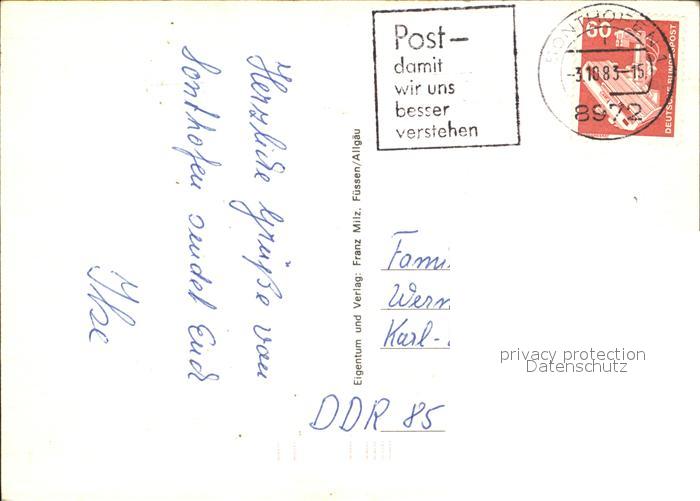 Herzliche Grüße von
Sonthofen sendet Euch
Ilse
Eigentum und Verlag: Franz Milz, Füssen/Allgäu
Post–
damit
wir uns
besser
verstehen
SONTHOFEN
1
-3.10.83-15
8972
60
DEUTSCHE BUNDESPOST
Fami
Wern
Karl-
DDR 85
privacy protection
Datenschutz